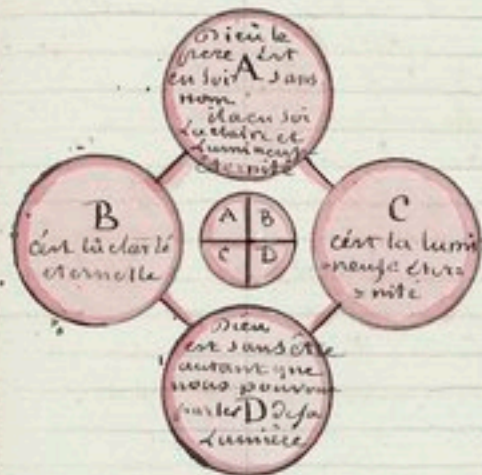 Dieu le
pere Est
A
en soi sans
nom
il a en soi
La claire et
Lumineuse
eternité
B
c'est la clarté
eternelle
A B
C D
C
c'est la lumi
=neuse éter=
=nité
Dieu
est sans être
autant que
nous pouvons
parler D de sa
Lumière